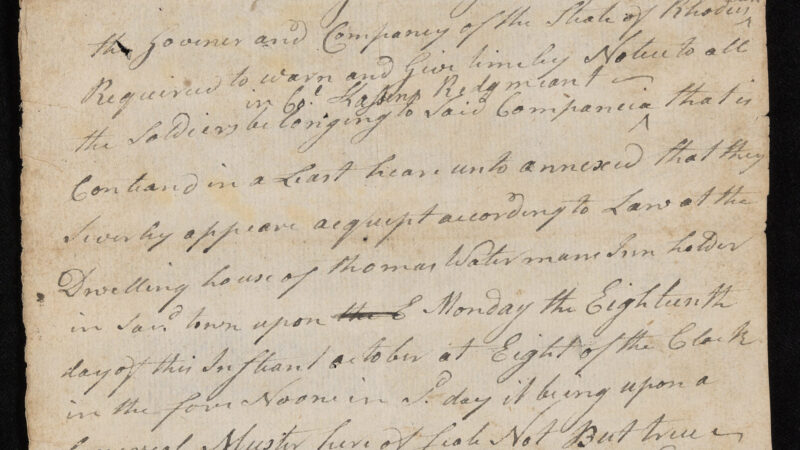 the Govener and Company of the State of Rhode
Required to warn and Give timely Notice to all
in Col. Redgmeant
the Soldiers belonging to Said Companeia ^ that is
Contiand in a Least heare unto annexed that they
Siverly appeare aequipt according to Law at the
Dwelling house of thomas Watermans Inn holder
in Said town upon the E Monday the Eighteenth
day of this Instant october at Eight of the Clock
in the fore Noone in Sd. day it being upon a
General Muster here of fail Not But true